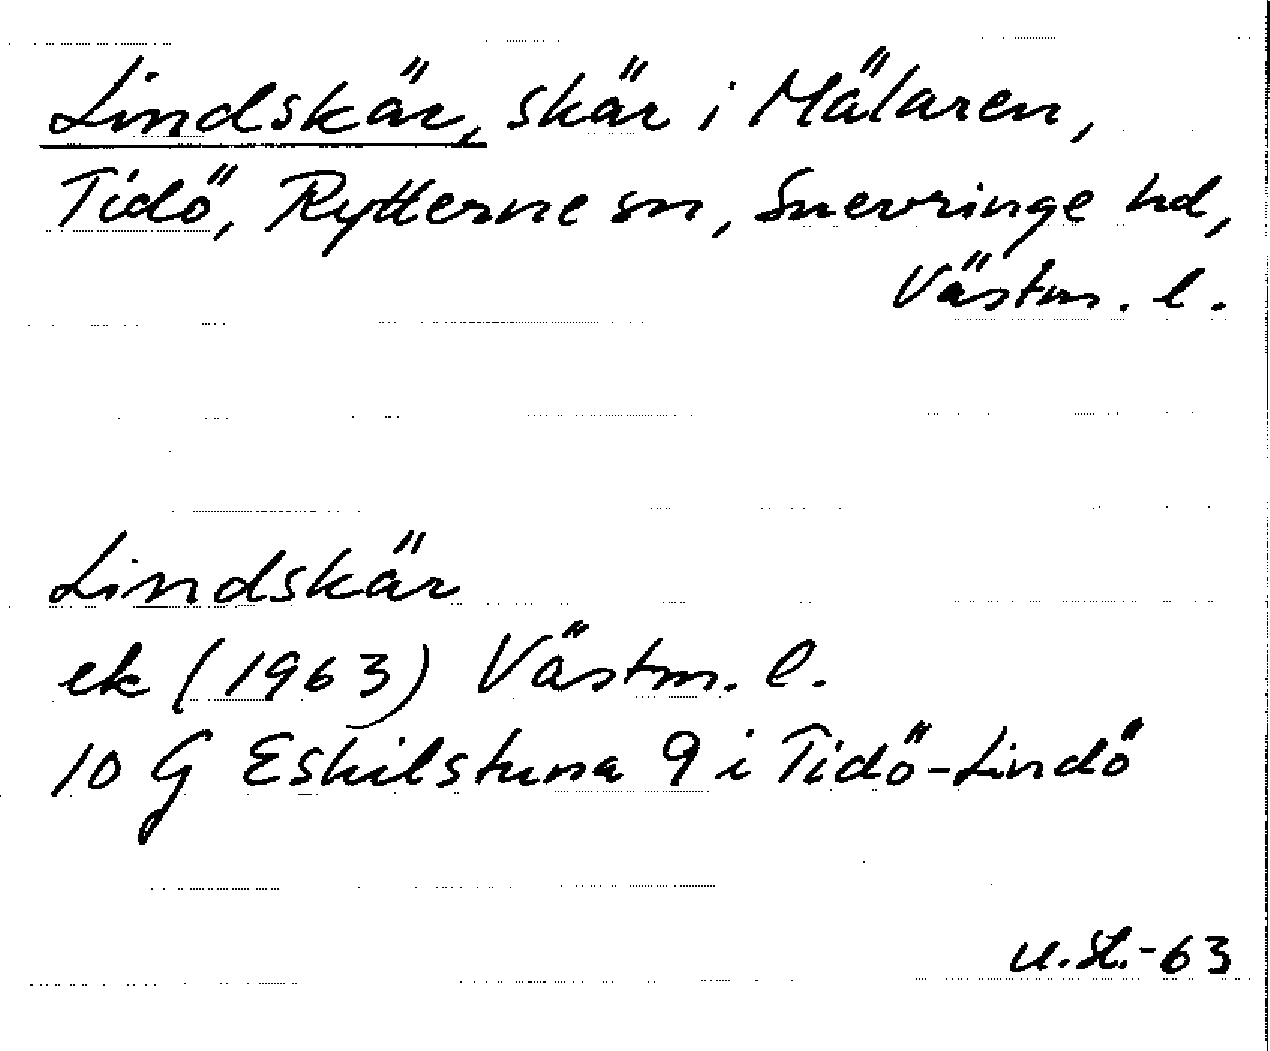 Lindskär, skär i Mälaren,
Tidö, Rytterne sn, Snevringe hd,
Västm. l.
Lindskär
ek (1963) Västm. l.
10 G Eskilstuna 9 i Tidö-Lindö
u.st.-63